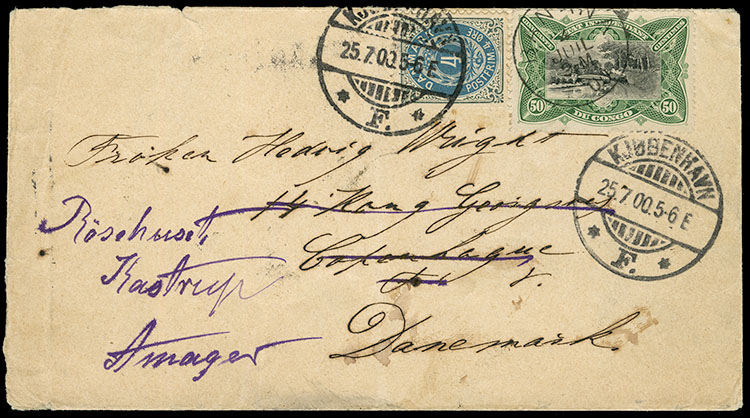 KJØBENHAVN
25.7.00.5-6 E
F.
DANMARK
4
POSTFRIM. 4 ØRE
CENTIMES
CENTIMES
50
50
DU CONGO
JUIL
KJØBENHAVN
25.7.00.5-6 E
F.
Fröken Hedvig Wright
14 Kong Georgsvej
Copenhague
Danemark.
Rösehuset,
Kastrup
Amager